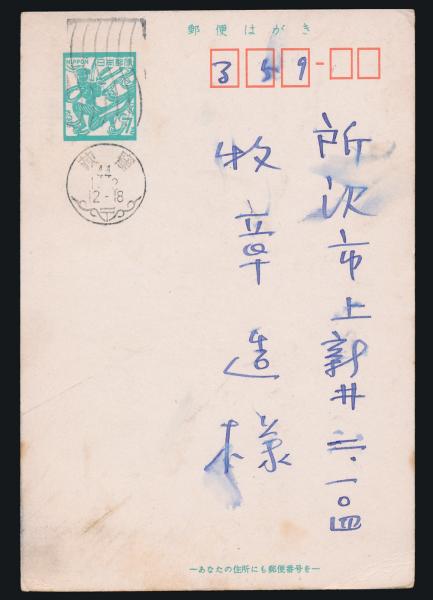 郵便はがき
NIPPON 日本郵便
7
359-
44
12-18
所沢市上新井二・一〇四
牧章造様
—あなたの住所にも郵便番号を—